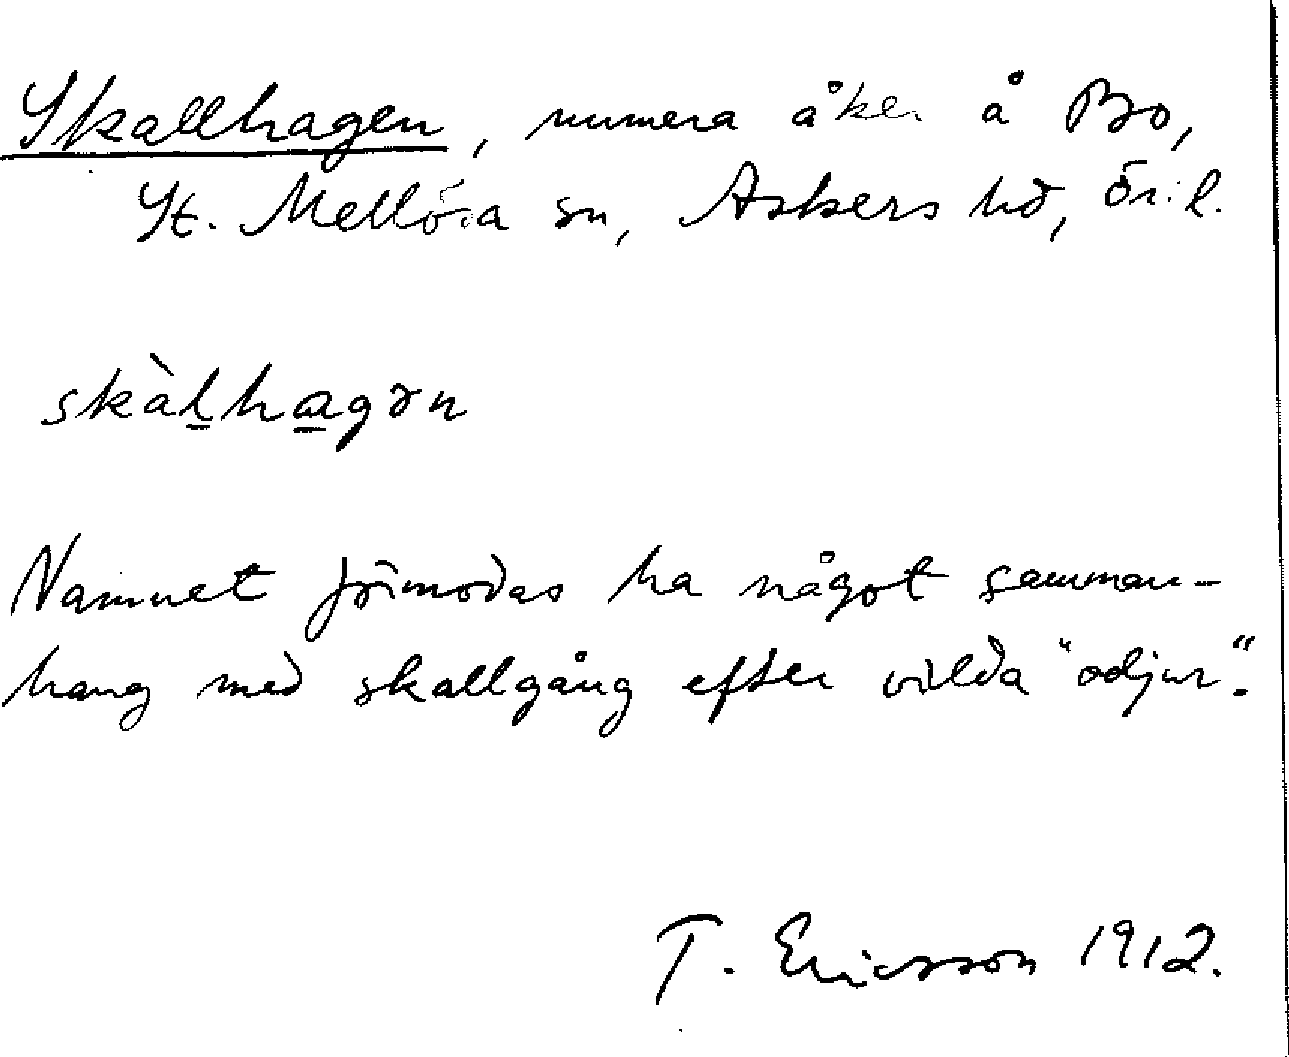 Skallhagen, numera åker å Bo,
St. Mellösa sn, Askers hd, Ör. l.
skàl̠ha̠gən
Namnet förmodas ha något samman-
hang med skallgång efter vilda "odjur".
T. Ericsson 1912.